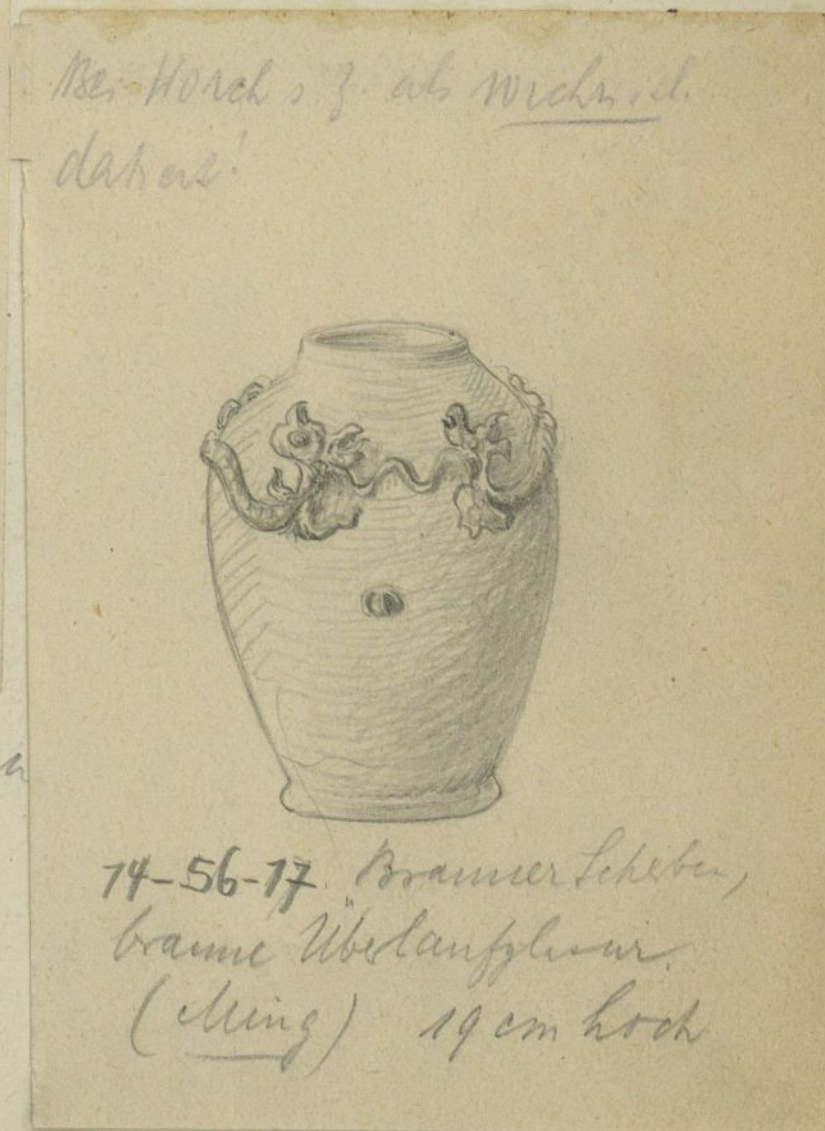 Bei Worch s. Z. als
datiert!
14-56-17. Brauner Scherben,
braune Überlaufglasur.
(Ming) 19 cm hoch